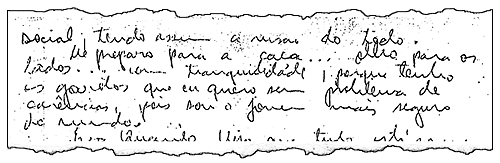 social, tendo assim a visão do todo.
Me preparo para a caça... olho para os
lados... com tranquilidade, porque tenho
as garotas que eu quero sem problema de
carências, pois sou o jovem mais seguro
do mundo...